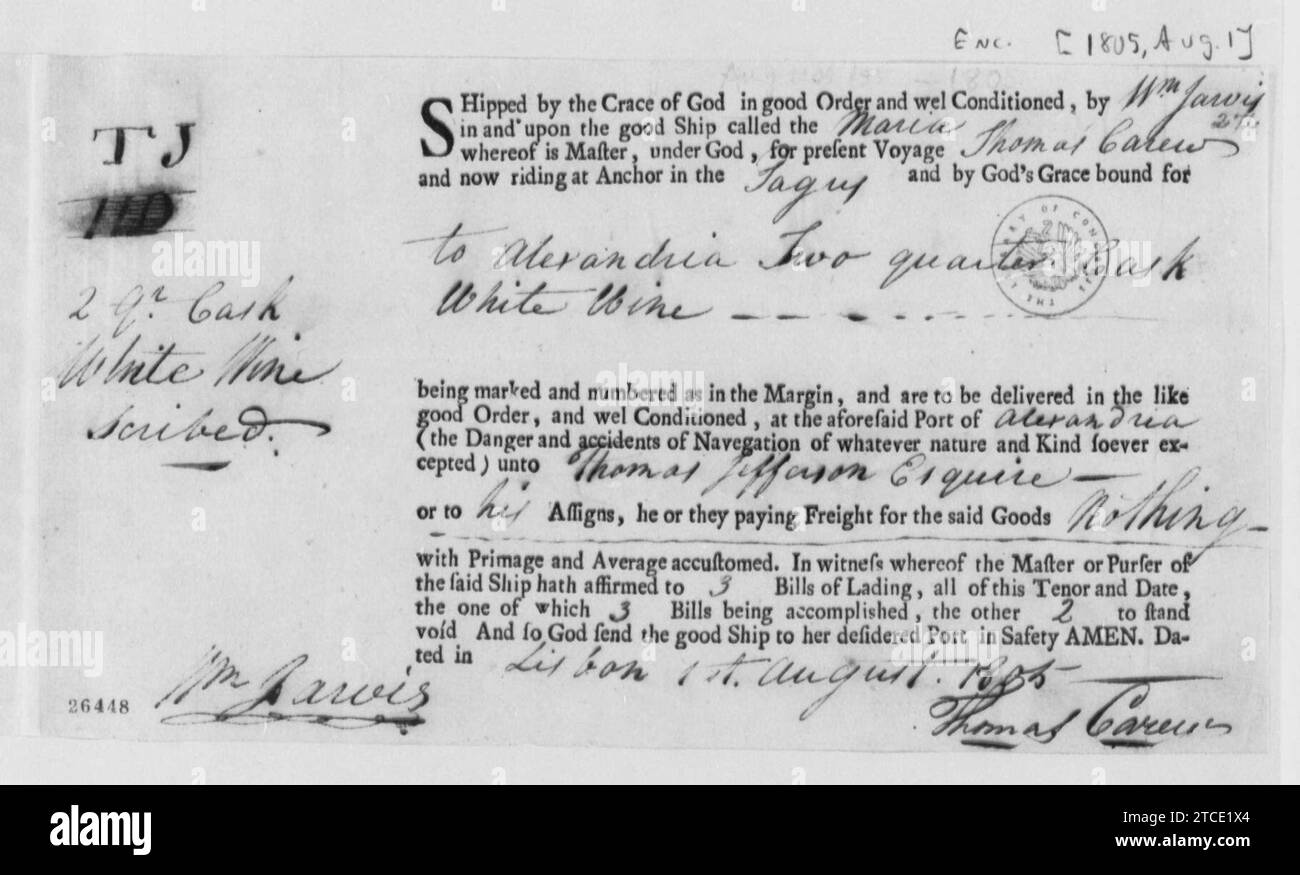 Enc. [1805, Aug. 1]
SHipped by the Crace of God in good Order and wel Conditioned, by Wm Jarvis
in and upon the good Ship called the Maria
whereof is Maſter, under God, for preſent Voyage Thomas Carew
and now riding at Anchor in the Tagus and by God's Grace bound for
to Alexandria Two quarter Cask
White Wine
TJ
2 qr. Cask
White Wine
scribed.
THE LIBRARY OF CONGRESS
being marked and numbered as in the Margin, and are to be delivered in the like
good Order, and wel Conditioned, at the aforeſaid Port of Alexandria
(the Danger and accidents of Navegation of whatever nature and Kind ſoever ex-
cepted) unto Thomas Jefferson Esquire
or to his Aſſigns, he or they paying Freight for the said Goods Nothing
with Primage and Average accuſtomed. In witneſs whereof the Maſter or Purſer of
the ſaid Ship hath affirmed to 3 Bills of Lading, all of this Tenor and Date,
the one of which 3 Bills being accompliſhed, the other 2 to ſtand
void And ſo God ſend the good Ship to her deſidered Port in Safety AMEN. Da-
ted in Lisbon 1st. August. 1805
26448
Wm Jarvis
Thomas Carew
alamy
Image ID: 2TCE1X4
www.alamy.com